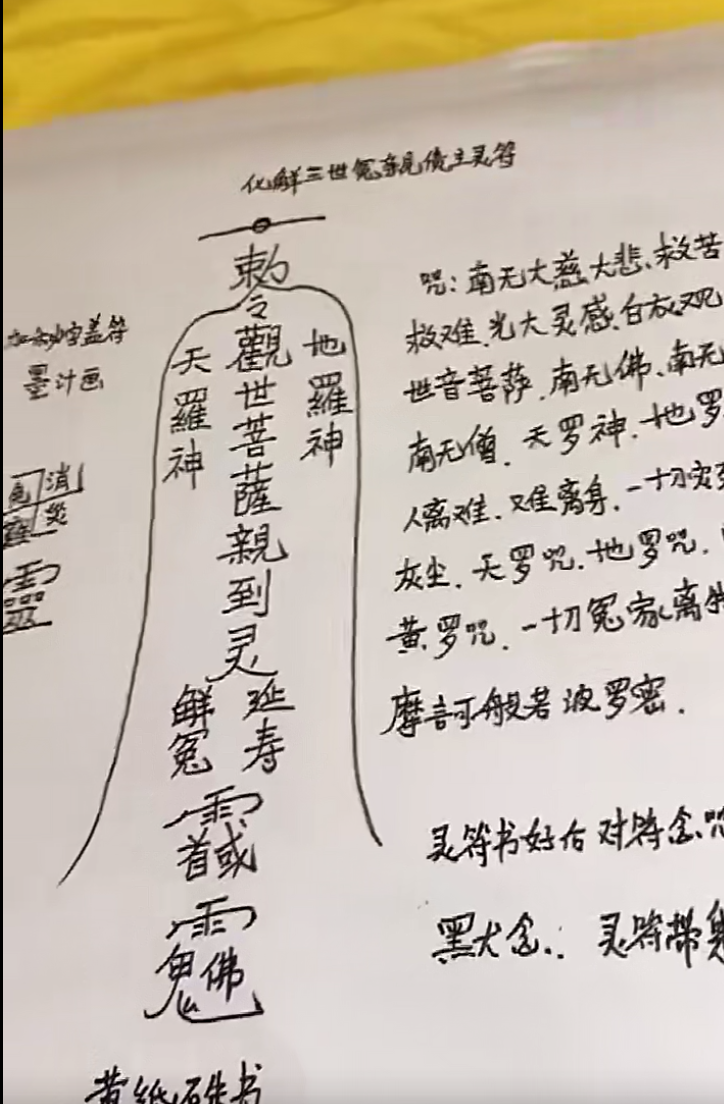 化解三世冤亲债主灵符
勅
令
觀世菩薩親到灵
天羅神
地羅神
解冤
延寿
黄纸硃书
盖符
墨计画
消
災
靈
咒：南无大慈大悲、救苦
救难、光大灵感、白衣观
世音菩萨、南无佛、南无
南无僧、天罗神、地罗
人离难、难离身、一切灾
灰尘、天罗咒、地罗咒、
黄罗咒、一切冤家离
摩诃般若波罗密.
灵符书好后对符念咒
灵符带